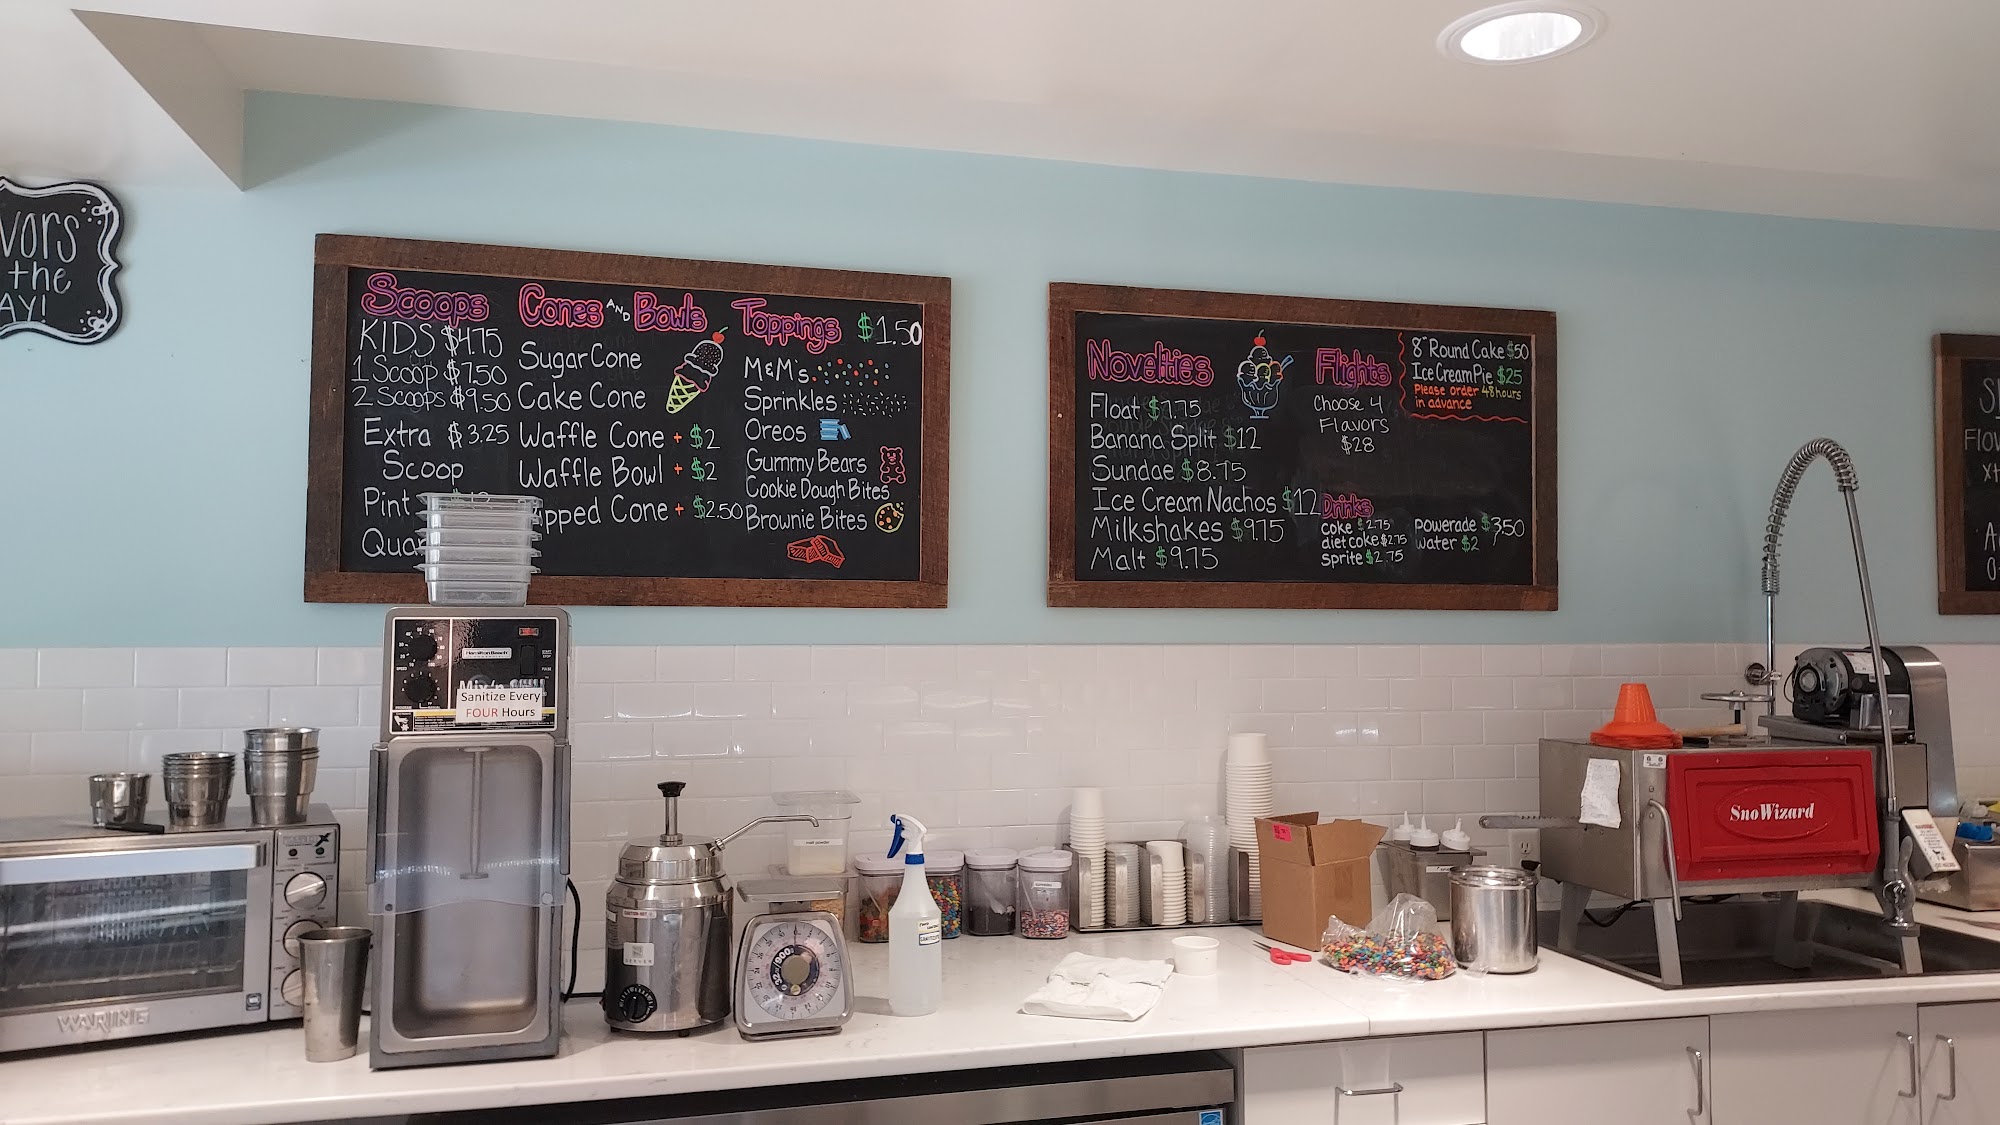 vors
the
AY!
Scoops
KIDS $4.75
1 Scoop $7.50
2 Scoops $9.50
Extra $3.25
Scoop
Pint
Cones AND Bowls
Sugar Cone
Cake Cone
Waffle Cone + $2
Waffle Bowl + $2
ipped Cone + $2.50
Toppings $1.50
M&M's
Sprinkles
Oreos
Gummy Bears
Cookie Dough Bites
Brownie Bites
Novelties
Float $7.75
Banana Split $12
Sundae $8.75
Ice Cream Nachos $12
Milkshakes $9.75
Malt $9.75
Flights
Choose 4
Flavors
$28
8" Round Cake $50
Ice Cream Pie $25
Please order 48 hours
in advance
Drinks
coke $2.75
diet coke $2.75
sprite $2.75
powerade $3.50
water $2
Hamilton Beach
Sanitize Every
FOUR Hours
WARING
malt powder
SnoWizard